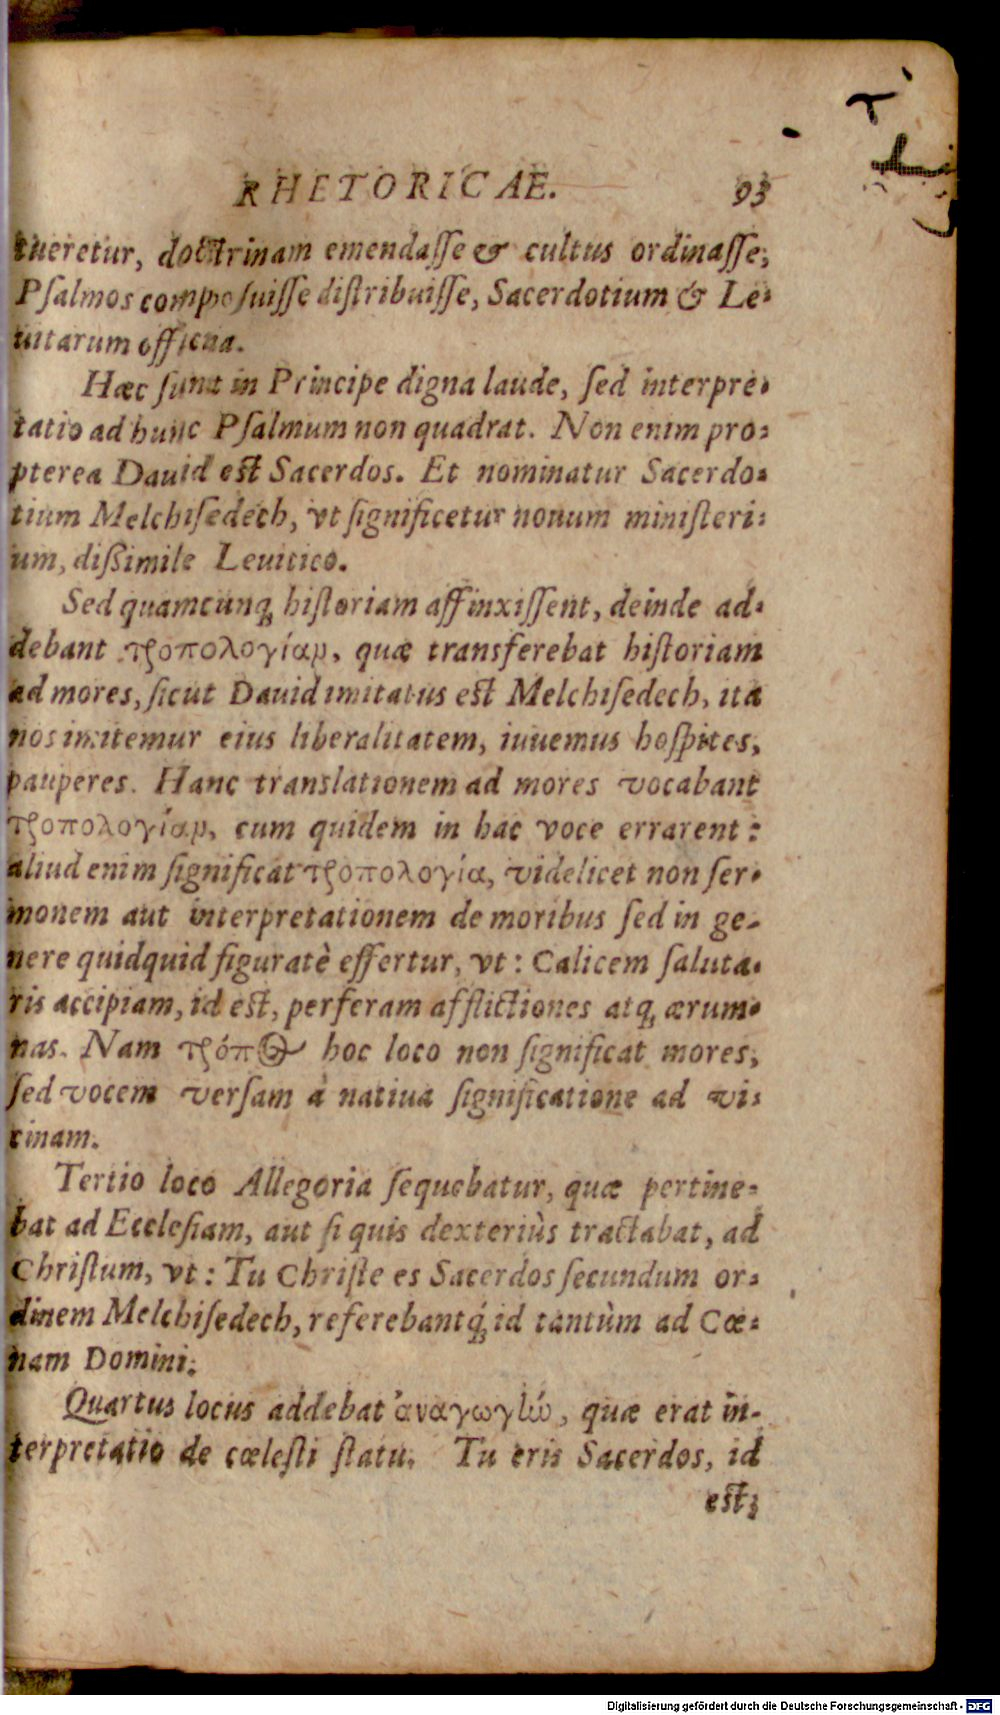 RHETORICAE. 93
tueretur, doctrinam emendaſſe & cultus ordinaſſe,
Pſalmos compoſuiſſe diſtribuiſſe, Sacerdotium & Le-
uitarum officia.
Hæc ſunt in Principe digna laude, ſed interpre-
tatio ad hunc Pſalmum non quadrat. Non enim pro-
pterea Dauid eſt Sacerdos. Et nominatur Sacerdo-
tium Melchiſedech, vt ſignificetur nouum miniſteri-
um, dißimile Leuitico.
Sed quamcunq; hiſtoriam affinxiſſent, deinde ad-
debant τροπολογίαν, quæ transferebat hiſtoriam
ad mores, ſicut Dauid imitatus eſt Melchiſedech, ita
nos imitemur eius liberalitatem, iuuemus hoſpites,
pauperes. Hanc translationem ad mores vocabant
τροπολογίαν, cum quidem in hac voce errarent:
aliud enim ſignificat τροπολογία, videlicet non ſer-
monem aut interpretationem de moribus ſed in ge-
nere quidquid figuratè effertur, vt: Calicem ſaluta-
ris accipiam, id eſt, perferam afflictiones atq; ærum-
nas. Nam τρόπος hoc loco non ſignificat mores,
ſed vocem verſam à natiua ſignificatione ad vi-
cinam.
Tertio loco Allegoria ſequebatur, quæ pertine-
bat ad Eccleſiam, aut ſi quis dexteriùs tractabat, ad
Chriſtum, vt: Tu Chriſte es Sacerdos ſecundum or-
dinem Melchiſedech, referebantq́; id tantùm ad Cœ-
nam Domini.
Quartus locus addebat ἀναγωγὴν, quæ erat in-
terpretatio de cœleſti ſtatu. Tu eris Sacerdos, id
eſt,
Digitalisierung gefördert durch die Deutsche Forschungsgemeinschaft - DFG